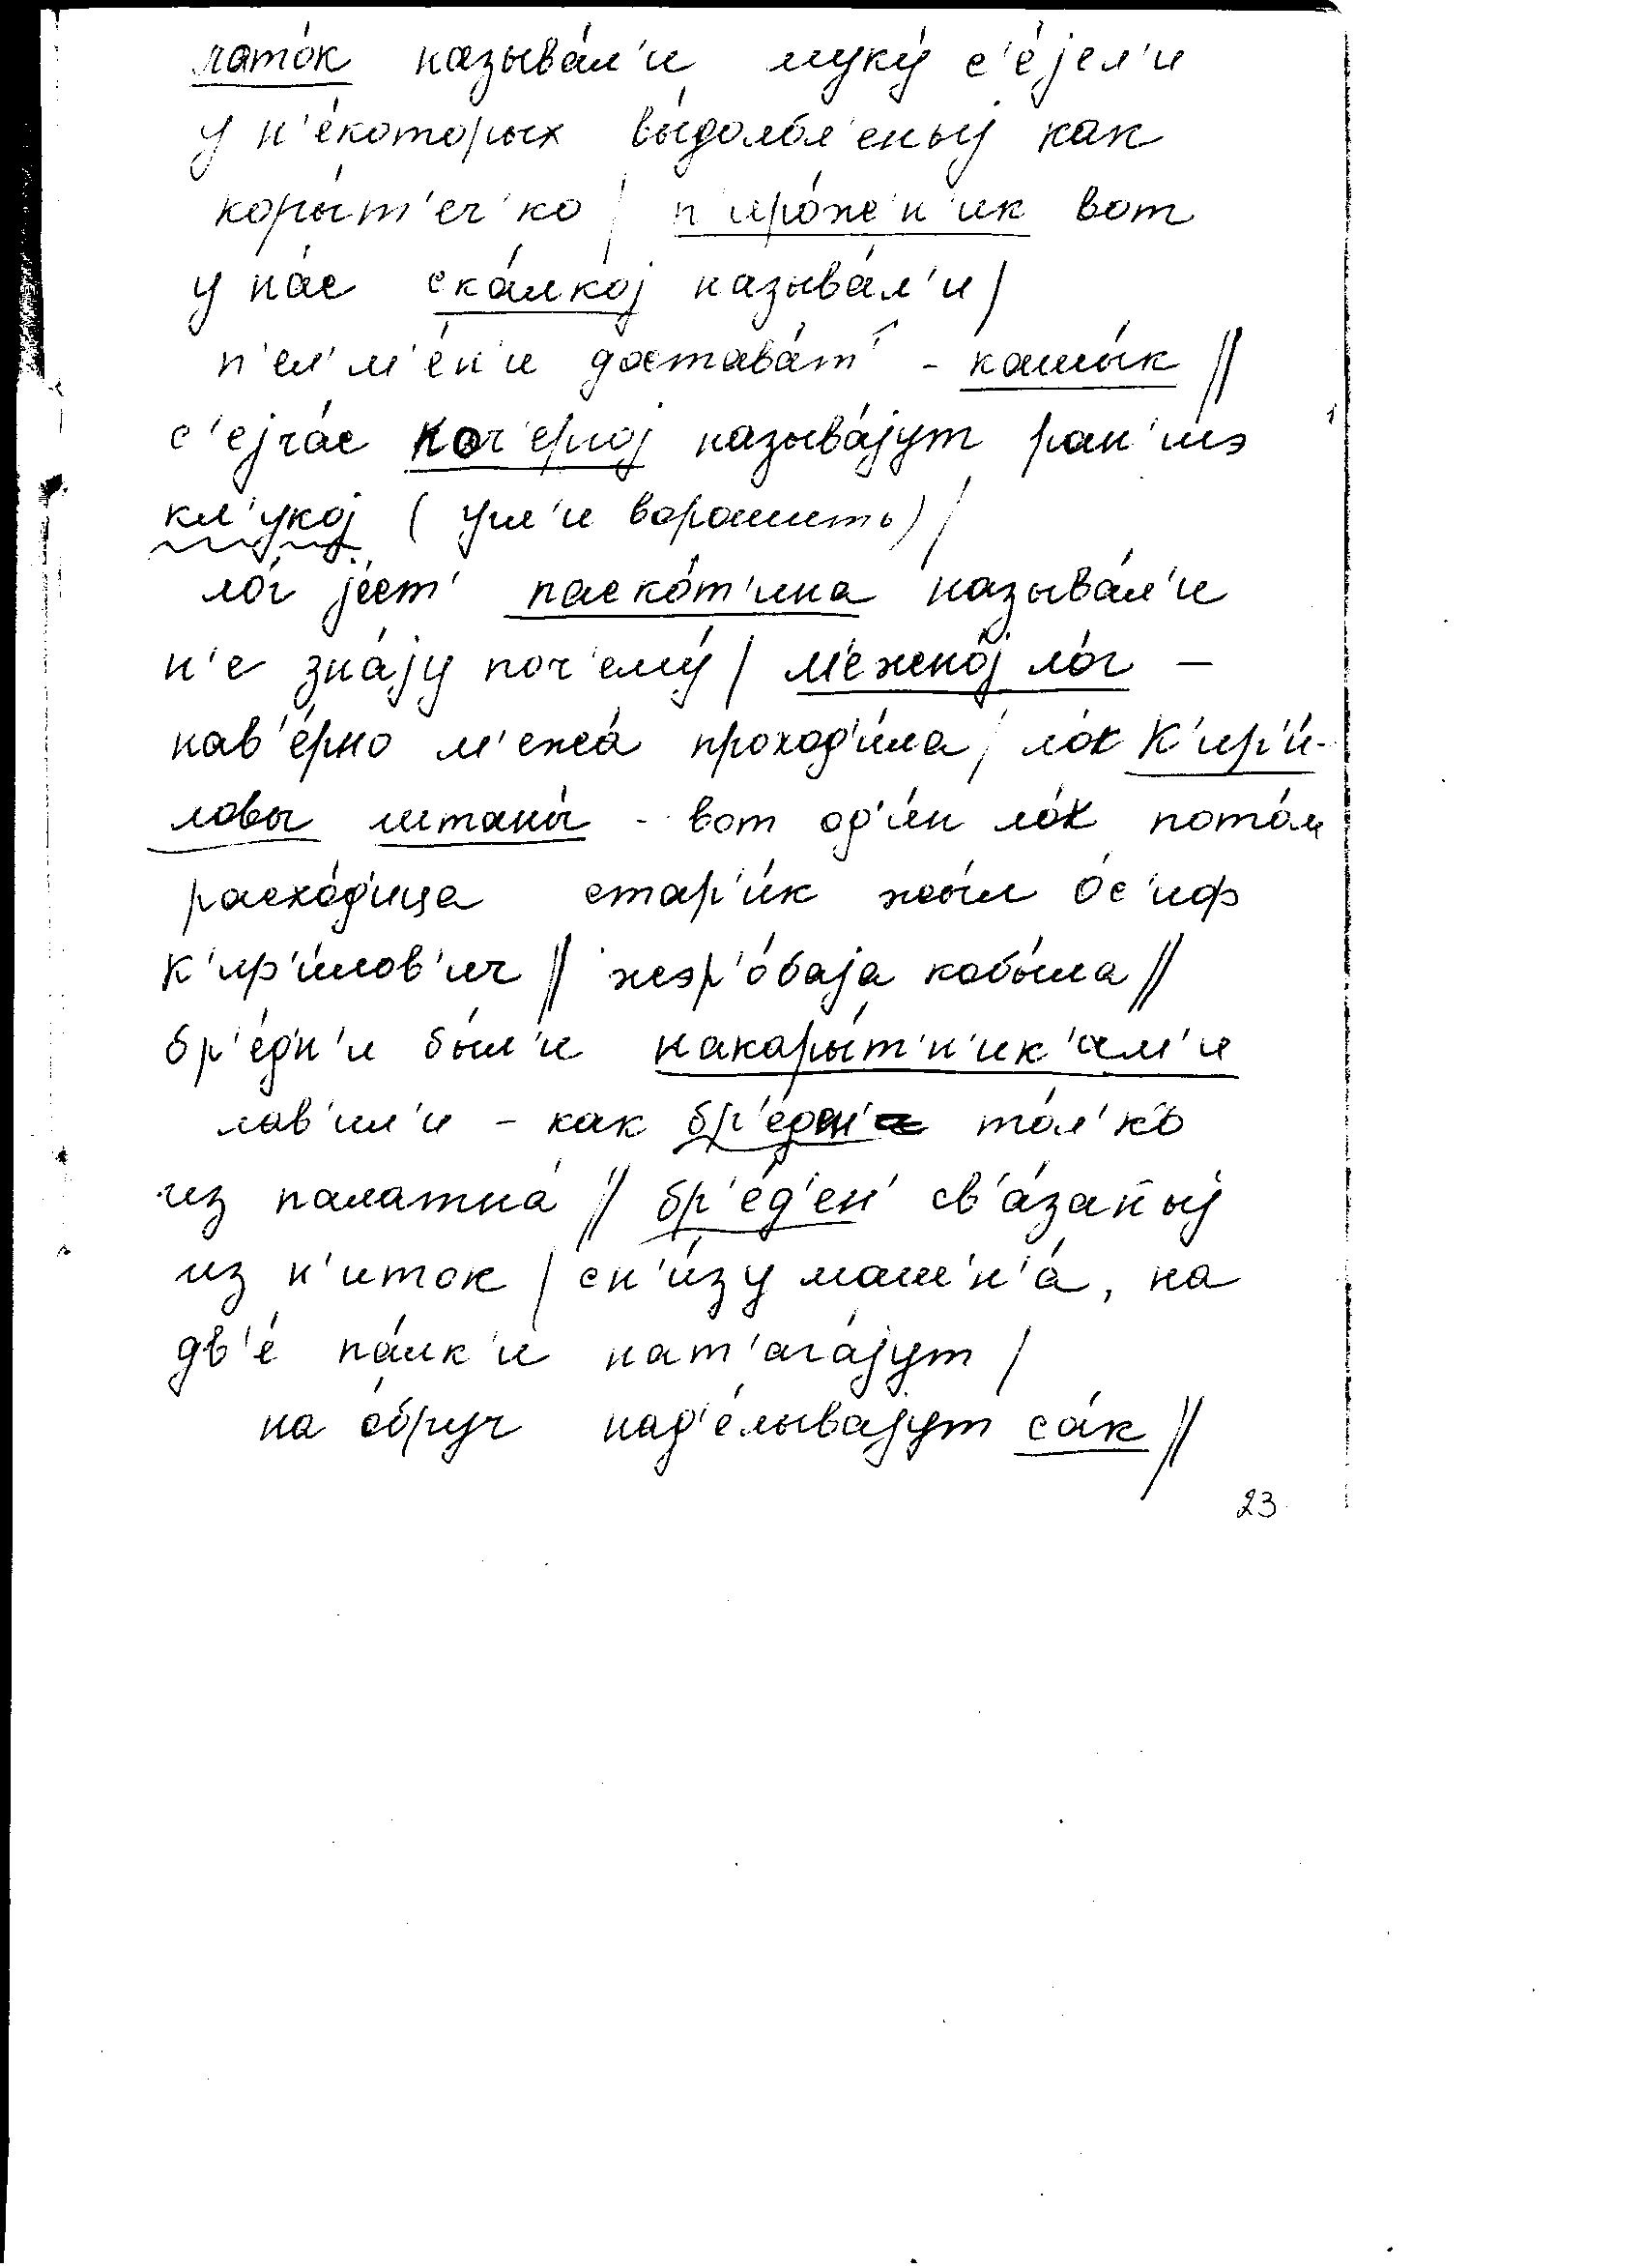 лато́к называ́л'и муку́ с'е́jел'и
у н'е́которых вы́долбл'еныj как
коры́т'еч'ко / п'иро́жн'ик вот
у на́с ска́лкоj называ́л'и /
п'ел'м'е́н'и достава́т' - кошы́к //
с'еjча́с коч'ергоj называ́jут ран'шэ
кл'укоj (угл'и ворошить) /
ло́г jе́ст' паско́т'ина называ́л'и
н'е зна́jу поч'ему́ / м'ежно́j ло́г –
нав'е́рно м'ежа́ проход'и́ла / ло́к К'ир'и́-
ловы штаны́ - вот од'и́н ло́к пото́м
расхо́д'ица стар'и́к жы́л О́с'иф
К'ир'и́лов'ич // жэр'о́баjа кобы́ла //
бр'е́дн'и бы́л'и накары́т'н'ик'ам'и
лов'ил'и - как бр'е́дн' то́л'ко
из палатна́ // бр'е́д'ен' св'а́заныj
из н'иток / сн'и́зу матн'а́, на
дв'е́ па́лк'и нат'ага́jут /
на о́бруч над'е́лываjут са́к //
23